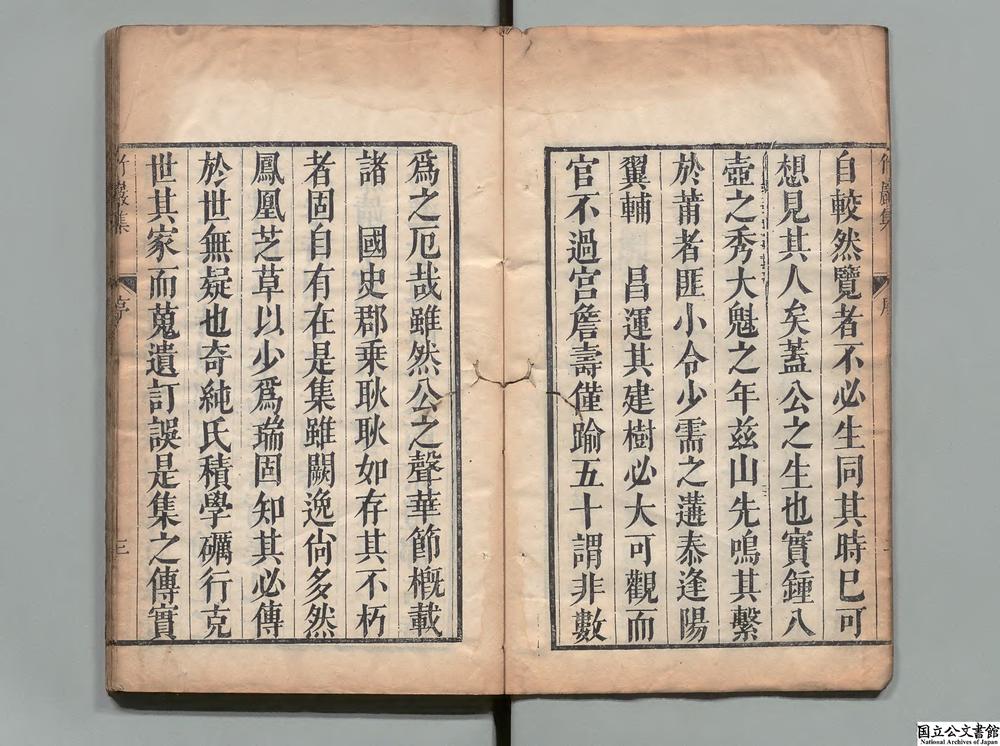 自較然覽者不必生同其時巳可
想見其人矣蓋公之生也實鍾八
壺之秀大魁之年兹山先鳴其繫
於莆者匪小令少需之遘泰逢陽
翼輔　昌運其建樹必大可觀而
官不過宫詹壽僅踰五十謂非數
爲之厄哉雖然公之聲華節槪載
諸　國史郡乘耿耿如存其不朽
者固自有在是集雖闕逸尙多然
鳳凰芝草以少爲瑞固知其必傳
於世無疑也奇純氏積學礪行克
世其家而蒐遺訂誤是集之傳實
竹巖集
序
三
国立公文書館
National Archives of Japan